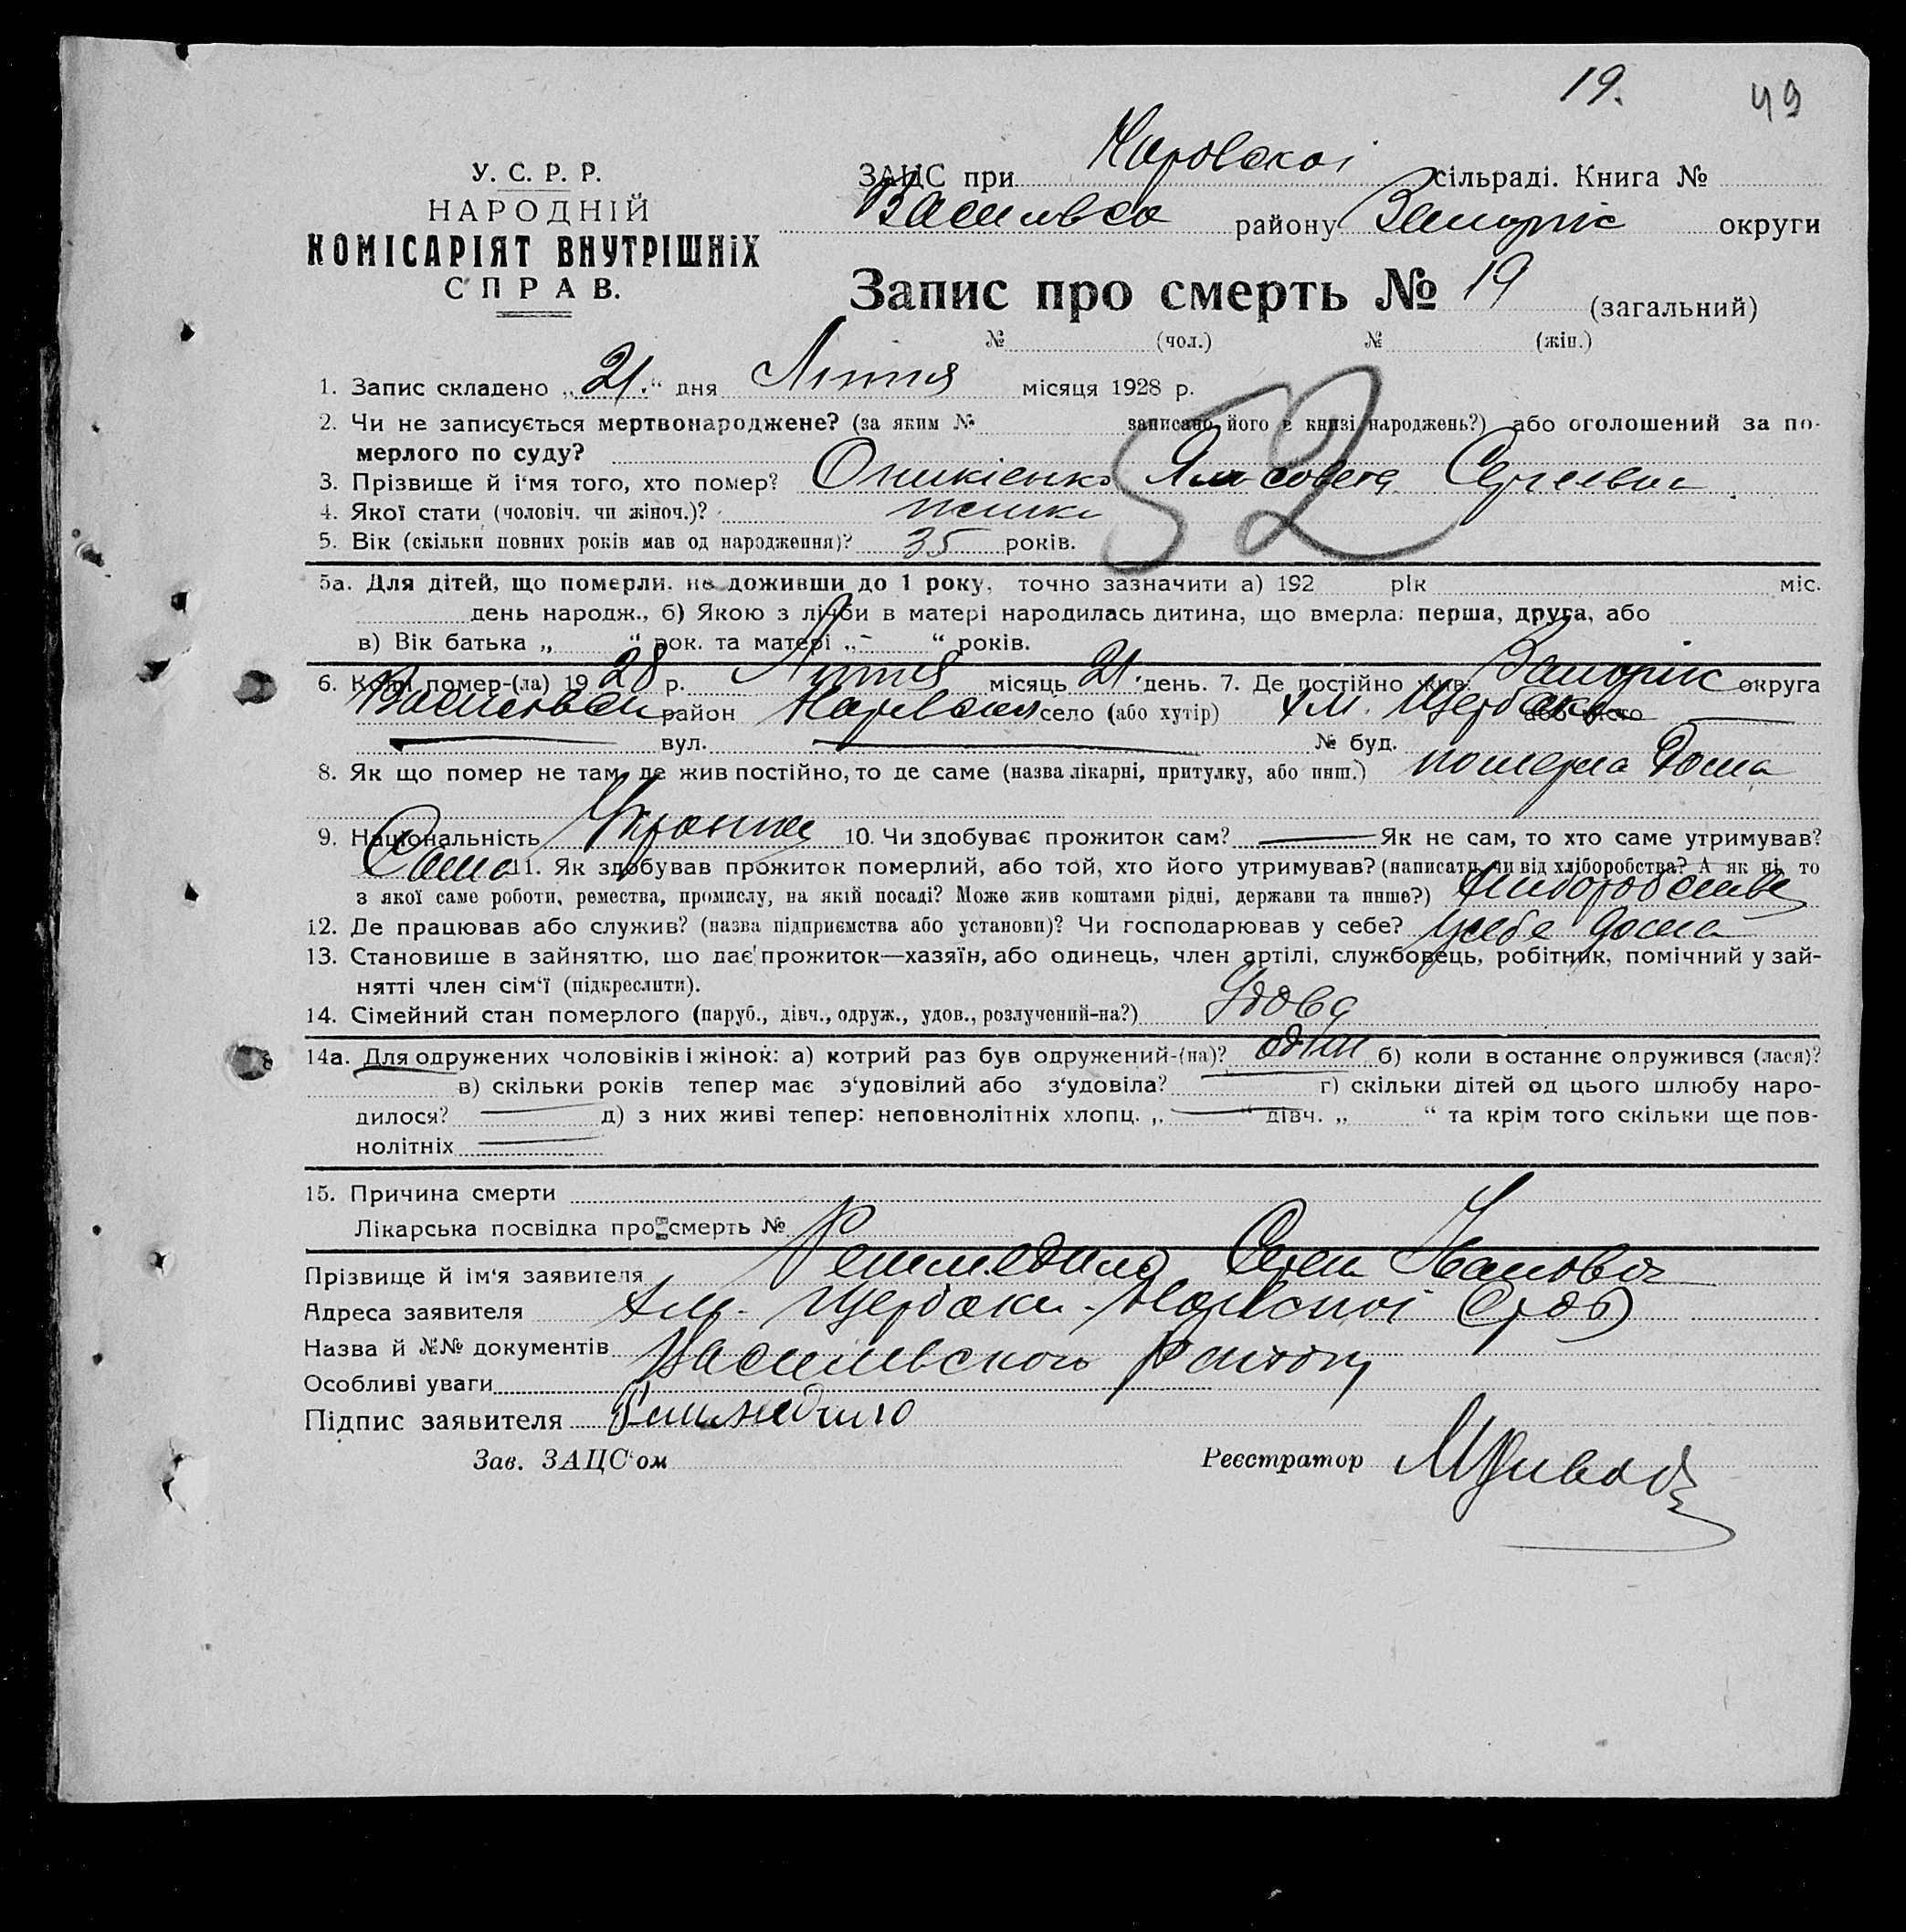 19.
49
У. С. Р. Р.
НАРОДНІЙ
КОМІСАРІЯТ ВНУТРІШНІХ
СПРАВ.
ЗАЦС при сільраді. Книга №
району округи
Запис про смерть № 19 (загальний)
№ (чол.) № (жін.)
1. Запис складено „21.“ дня місяця 1928 р.
52
2. Чи не записується мертвонароджене? (за яким № записано його в книзі народжень?) або оголошений за по-
мерлого по суду?
3. Прізвище й і'мя того, хто помер? Оникієнко
4. Якої стати (чоловіч. чи жіноч.)?
5. Вік (скільки повних років мав од народження)? 35 років.
5а. Для дітей, що померли, не доживши до 1 року, точно зазначити а) 192 рік міс.
день народж., б) Якою з лічби в матері народилась дитина, що вмерла: перша, друга, або
в) Вік батька „ “ рок. та матері „ “ років.
6. Коли помер-(ла) 1928 р. місяць 21. день. 7. Де постійно жив. округа
район село (або хутір) Щербаки або місто
вул. № буд.
8. Як що помер не там, де жив постійно, то де саме (назва лікарні, притулку, або инш.) померла дома
9. Національність 10. Чи здобуває прожиток сам? Як не сам, то хто саме утримував?
Сама 11. Як здобував прожиток померлий, або той, хто його утримував? (написати, чи від хліборобства? А як ні, то
з якої саме роботи, ремества, промислу, на якій посаді? Може жив коштами рідні, держави та инше?)
12. Де працював або служив? (назва підприємства або установи)? Чи господарював у себе? усебе дома
13. Становише в зайняттю, що дає прожиток—хазяїн, або одинець, член артілі, службовець, робітник, помічний у зай-
нятті член сім'ї (підкреслити).
14. Сімейний стан померлого (паруб., дівч., одруж., удов., розлучений-на?) Удова
14а. Для одружених чоловіків і жінок: а) котрий раз був одружений-(на)? один б) коли в останнє одружився (лася)?
в) скільки років тепер має з'удовілий або з'удовіла? г) скільки дітей од цього шлюбу наро-
дилося? д) з них живі тепер: неповнолітніх хлопц. „ “ дівч. „ “ та крім того скільки ще пов-
нолітніх
15. Причина смерти
Лікарська посвідка про смерть №
Прізвище й ім'я заявителя
Адреса заявителя Щербаки
Назва й №№ документів Василевского району
Особливі уваги
Підпис заявителя
Зав. ЗАЦС'ом Реєстратор